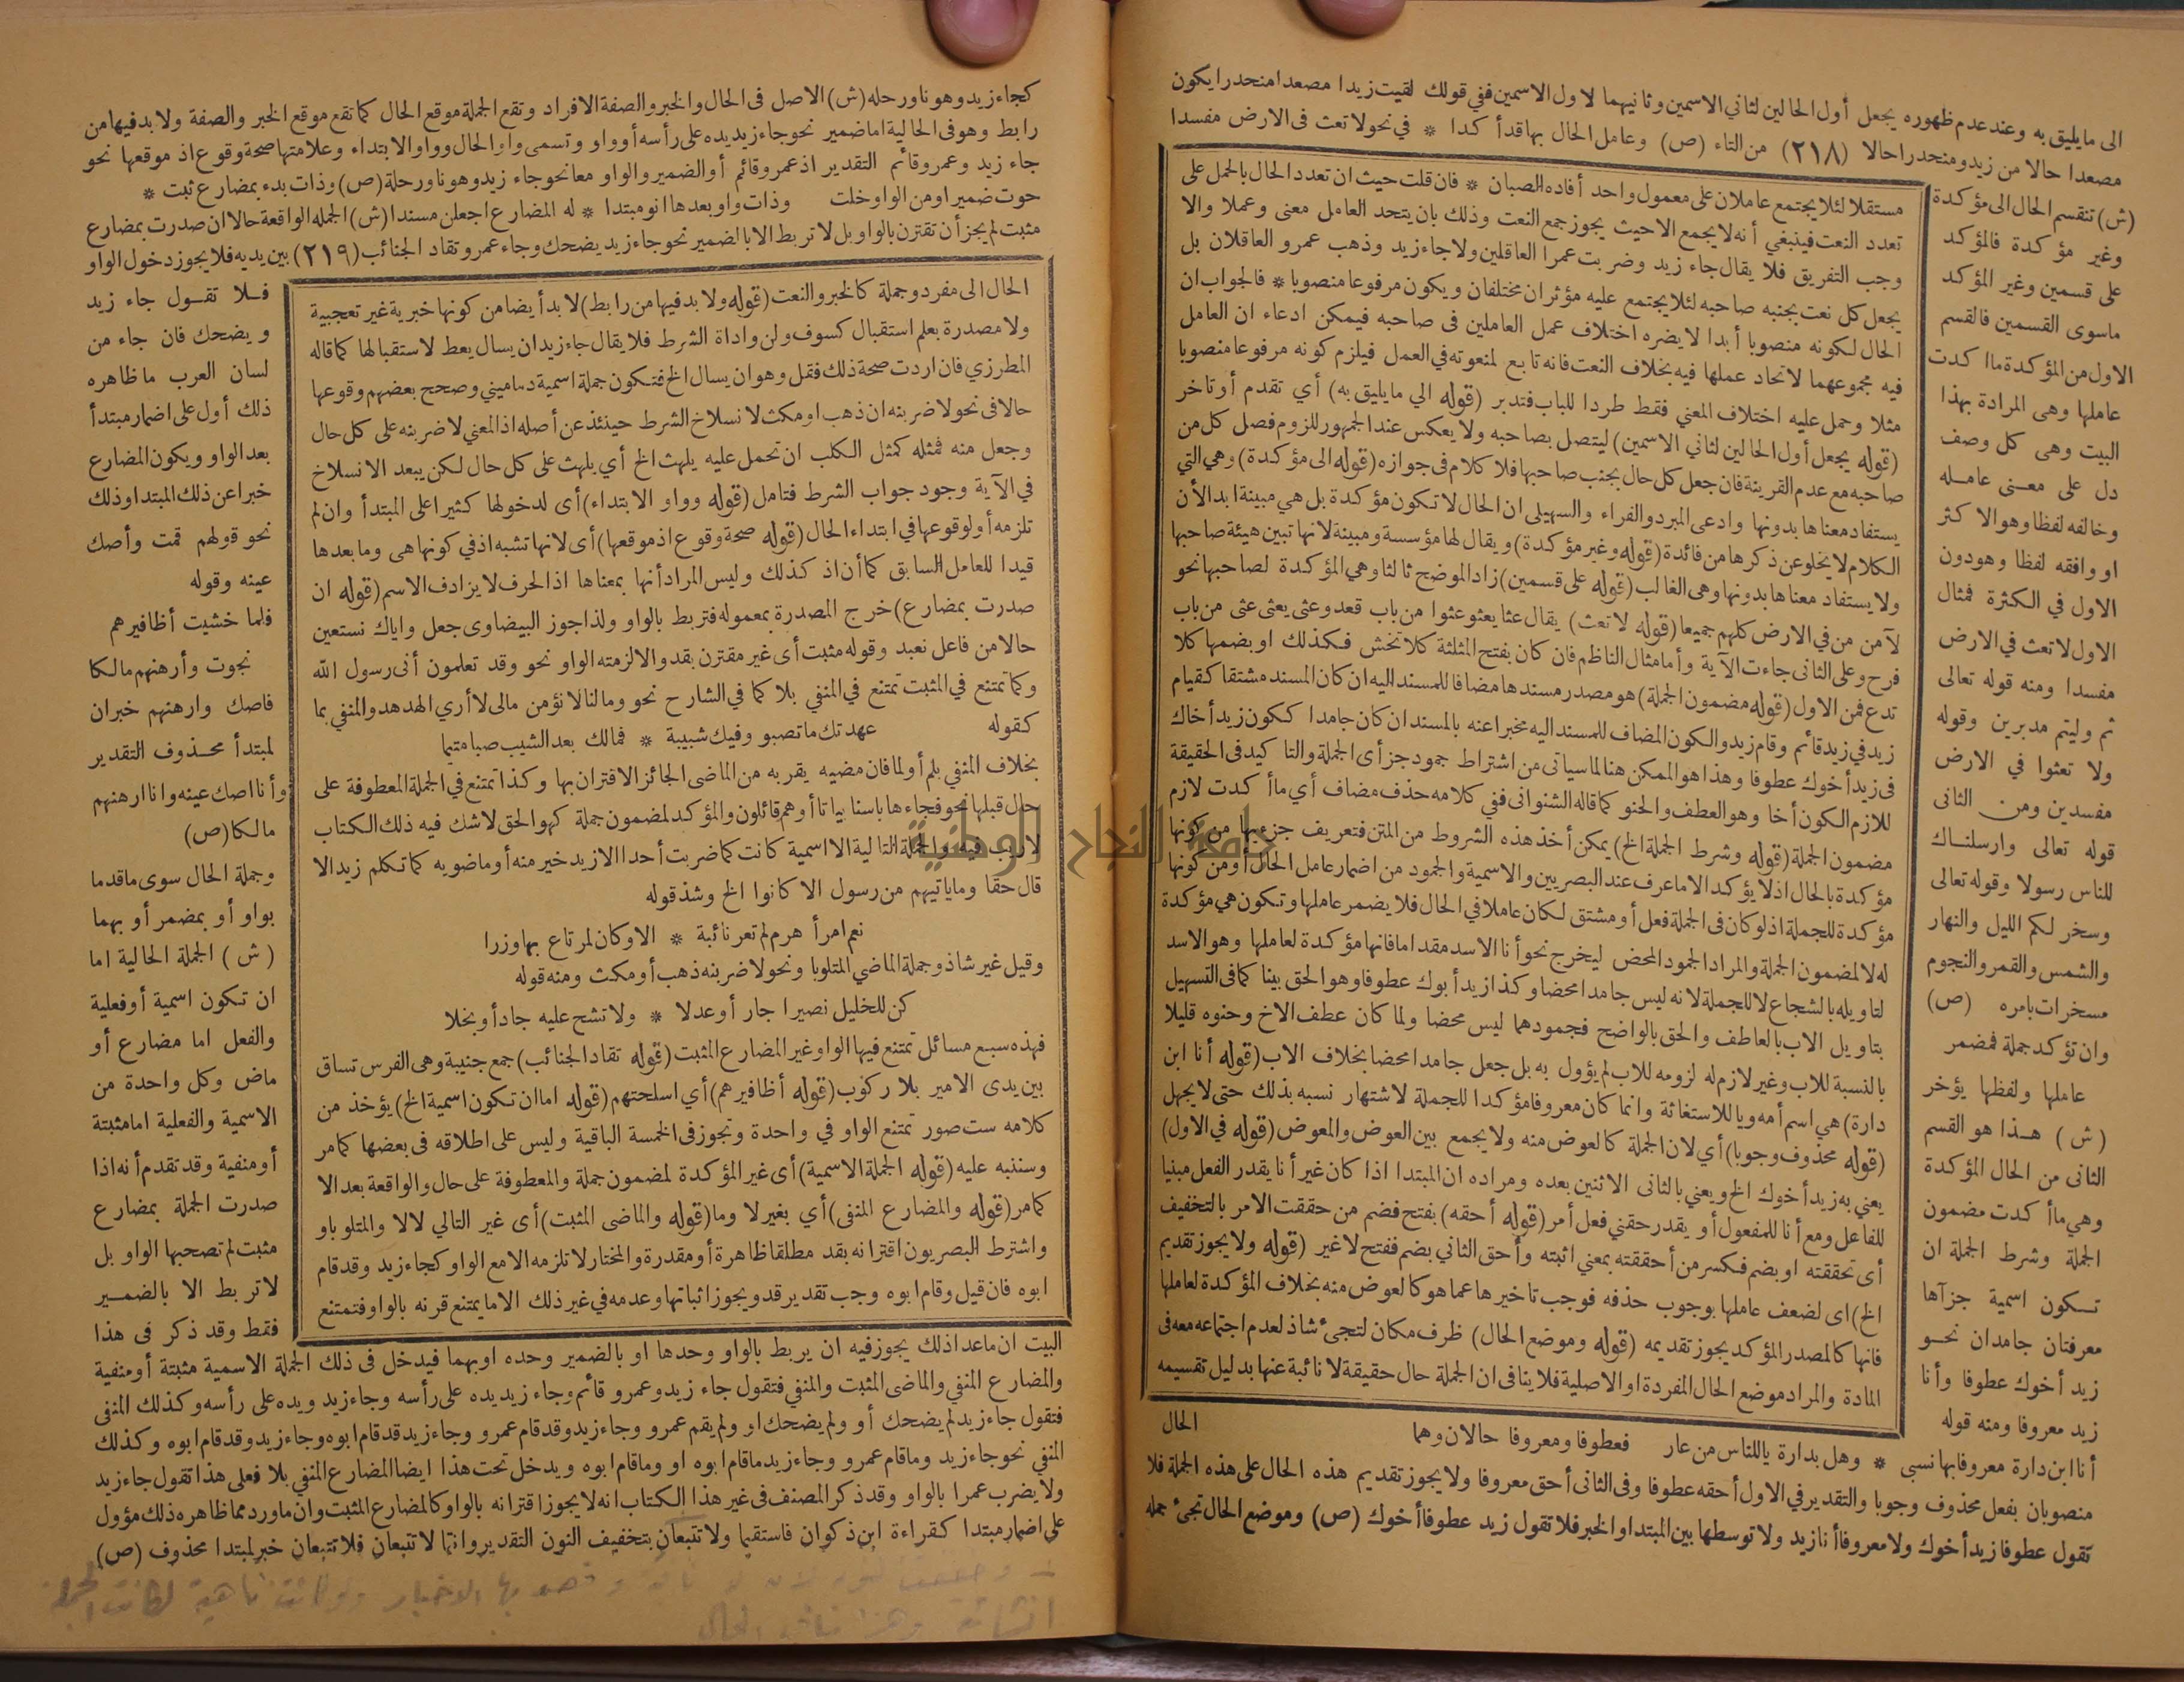 الى مايليق به وعند عدم ظهوره يجعل أول الحالين لثاني الاسمين وثانيهما لاول الاسمين ففي قولك لقيت زيدا مصعدا منحدرا يكون
مصعدا حالا من زيد ومنحدرا حالا (٢١٨) من التاء (ص) وعامل الحال بها قد أكدا * في نحو لا تعث فى الارض مفسدا
(ش) تنقسم الحال الى مؤكدة
وغير مؤكدة فالمؤكد
على قسمين وغير المؤكد
ماسوى القسمين فالقسم
الاول من المؤكدة ما اكدت
عاملها وهى المرادة بهذا
البيت وهى كل وصف
دل على معنى عامله
وخالفه لفظا وهو الاكثر
او وافقه لفظا وهو دون
الاول في الكثرة فمثال
الاول لا تعث في الارض
مفسدا ومنه قوله تعالى
ثم وليتم مدبرين وقوله
ولا تعثوا في الارض
مفسدين ومن الثانى
قوله تعالى وارسلناك
للناس رسولا وقوله تعالى
وسخر لكم الليل والنهار
والشمس والقمر والنجوم
مسخرات بامره (ص)
وان تؤكد جملة فمضمر
عاملها ولفظها يؤخر
(ش) هذا هو القسم
الثانى من الحال المؤكدة
وهي ما أكدت مضمون
الجملة وشرط الجملة ان
تكون اسمية جزآها
معرفتان جامدان نحو
زيد أخوك عطوفا وأنا
زيد معروفا ومنه قوله
مستقلا لئلا يجتمع عاملان على معمول واحد أفاده الصبان * فان قلت حيث ان تعدد الحال بالحمل على
تعدد النعت فينبغي أنه لا يجمع الا حيث يجوز جمع النعت وذلك بان يتحد العامل معنى وعملا والا
وجب التفريق فلا يقال جاء زيد وضربت عمرا العاقلين ولا جاء زيد وذهب عمرو العاقلان بل
يجعل كل نعت بجنبه صاحبه لئلا يجتمع عليه مؤثران مختلفان ويكون مرفوعا منصوبا * فالجواب ان
الحال لكونه منصوبا أبدا لا يضره اختلاف عمل العاملين فى صاحبه فيمكن ادعاء ان العامل
فيه مجموعهما لاتحاد عملها فيه بخلاف النعت فانه تابع لمنعوته في العمل فيلزم كونه مرفوعا منصوبا
مثلا وحمل عليه اختلاف المعني فقط طردا للباب فتدبر (قوله الي مايليق به) أي تقدم أو تاخر
(قوله يجعل أول الحالين لثاني الاسمين) ليتصل بصاحبه ولا يعكس عند الجمهور للزوم فصل كل من
صاحبه مع عدم القرينة فان جعل كل حال بجنب صاحبها فلا كلام فى جوازه (قوله الى مؤكدة) وهي التي
يستفاد معناها بدونها وادعى المبرد والفراء والسهيلى ان الحال لا تكون مؤكدة بل هي مبينة ابدا لأن
الكلام لا يخلو عن ذكرها من فائدة (قوله وغير مؤكدة) ويقال لها مؤسسة ومبينة لانها تبين هيئة صاحبها
ولا يستفاد معناها بدونها وهى الغالب (قوله على قسمين) زاد الموضح ثالثا وهي المؤكدة لصاحبها نحو
لآمن من في الارض كلهم جميعا (قوله لا تعث) يقال عثا يعثو عثوا من باب قعد وعثى يعثى عثى من باب
فرح وعلى الثانى جاءت الآية وأما مثال الناظم فان كان بفتح المثلثة كلا تخش فكذلك او بضمها كلا
تدع فمن الاول (قوله مضمون الجملة) هو مصدر مسندها مضافا للمسند اليه ان كان المسند مشتقا كقيام
زيد في زيد قائم وقام زيد والكون المضاف للمسند اليه مخبرا عنه بالمسند ان كان جامدا ككون زيد أخاك
فى زيد أخوك عطوفا وهذا هو الممكن هنا لما سياتى من اشتراط جمود جزأى الجملة والتاكيد فى الحقيقة
للازم الكون أخا وهو العطف والحنو كما قاله الشنوانى ففي كلامه حذف مضاف أي ما أكدت لازم
مضمون الجملة (قوله وشرط الجملة الخ) يمكن أخذ هذه الشروط من المتن فتعريف جزءيها من كونها
مؤكدة بالحال اذ لا يؤكد الا ما عرف عند البصريين والاسمية والجمود من اضمار عامل الحال أو من كونها
مؤكدة للجملة اذ لو كان فى الجملة فعل أو مشتق لكان عاملا في الحال فلا يضمر عاملها وتكون هي مؤكدة
له لا لمضمون الجملة والمراد الجمود المحض ليخرج نحو أنا الاسد مقداما فانها مؤكدة لعاملها وهو الاسد
لتاويله بالشجاع لا للجملة لانه ليس جامدا محضا وكذا زيد أبوك عطوفا وهو الحق بينا كما فى التسهيل
بتاويل الاب بالعاطف والحق بالواضح فجمودهما ليس محضا ولما كان عطف الاخ وحنوه قليلا
بالنسبة للاب وغير لازم له لزومه للاب لم يؤول به بل جعل جامدا محضا بخلاف الاب (قوله أنا ابن
دارة) هي اسم أمه ويا للاستغاثة وانما كان معروفا مؤكدا للجملة لاشتهار نسبه بذلك حتى لا يجهل
(قوله محذوف وجوبا) أي لان الجملة كالعوض منه ولا يجمع بين العوض والمعوض (قوله في الاول)
يعني به زيد أخوك الخ ويعني بالثانى الاثنين بعده ومراده ان المبتدا اذا كان غير أنا يقدر الفعل مبنيا
للفاعل ومع أنا للمفعول أو يقدر حقنى فعل أمر (قوله أحقه) بفتح فضم من حققت الامر بالتخفيف
أى تحققته او بضم فكسر من أحققته بمعني اثبته وأحق الثاني بضم ففتح لا غير (قوله ولا يجوز تقديم
الخ) اى لضعف عاملها بوجوب حذفه فوجب تاخيرها عما هو كالعوض منه بخلاف المؤكدة لعاملها
فانها كالمصدر المؤكد يجوز تقديمه (قوله وموضع الحال) ظرف مكان لتجىء شاذ لعدم اجتماعه معه فى
المادة والمراد موضع الحال المفردة او الاصلية فلا ينافى ان الجملة حال حقيقة لا نائبة عنها بدليل تقسيمه
الحال
أنا ابن دارة معروفا بها نسبى * وهل بدارة ياللناس من عار فعطوفا ومعروفا حالان وهما
منصوبان بفعل محذوف وجوبا والتقدير في الاول أحقه عطوفا وفى الثانى أحق معروفا ولا يجوز تقديم هذه الحال على هذه الجملة فلا
تقول عطوفا زيد أخوك ولا معروفا أنا زيد ولا توسطها بين المبتدا والخبر فلا تقول زيد عطوفا أخوك (ص) وموضع الحال تجىء جمله
كجاء زيد وهو ناو رحله (ش) الاصل فى الحال والخبر والصفة الافراد وتقع الجملة موقع الحال كما تقع موقع الخبر والصفة ولا بد فيها من
رابط وهو فى الحالية اما ضمير نحو جاء زيد يده على رأسه أو واو وتسمى واو الحال وواو الابتداء وعلامتها صحة وقوع اذ موقعها نحو
جاء زيد وعمرو قائم التقدير اذ عمرو قائم أو الضمير والواو معا نحو جاء زيد وهو ناو رحلة (ص) وذات بدء بمضارع ثبت *
حوت ضميرا ومن الواو خلت وذات واو بعدها انو مبتدا * له المضارع اجعلن مسندا (ش) الجمله الواقعة حالا ان صدرت بمضارع
مثبت لم يجز أن تقترن بالواو بل لا تربط الا بالضمير نحو جاء زيد يضحك وجاء عمرو تقاد الجنائب (٢١٩) بين يديه فلا يجوز دخول الواو
فلا تقول جاء زيد
ويضحك فان جاء من
لسان العرب ما ظاهره
ذلك أول على اضمار مبتدأ
بعد الواو ويكون المضارع
خبرا عن ذلك المبتدا وذلك
نحو قولهم قمت وأصك
عينه وقوله
فلما خشيت أظافيرهم
نجوت وأرهنهم مالكا
فاصك وارهنهم خبران
لمبتدأ محذوف التقدير
وأنا اصك عينه وانا ارهنهم
مالكا (ص)
وجملة الحال سوى ما قدما
بواو أو بمضمر أو بهما
(ش) الجملة الحالية اما
ان تكون اسمية أو فعلية
والفعل اما مضارع أو
ماض وكل واحدة من
الاسمية والفعلية اما مثبتة
أو منفية وقد تقدم أنه اذا
صدرت الجملة بمضارع
مثبت لم تصحبها الواو بل
لا تربط الا بالضمير
فقط وقد ذكر فى هذا
الحال الى مفرد وجملة كالخبر والنعت (قوله ولا بد فيها من رابط) لا بد أيضا من كونها خبرية غير تعجبية
ولا مصدرة بعلم استقبال كسوف ولن واداة الشرط فلا يقال جاء زيد ان يسال يعط لاستقبالها كما قاله
المطرزي فان اردت صحة ذلك فقل وهو ان يسال الخ فتكون جملة اسمية دماميني وصحح بعضهم وقوعها
حالا فى نحو لاضربنه ان ذهب او مكث لانسلاخ الشرط حينئذ عن أصله اذ المعني لاضربنه على كل حال
وجعل منه فمثله كمثل الكلب ان تحمل عليه يلهث الخ أي يلهث على كل حال لكن يبعد الانسلاخ
في الآية وجود جواب الشرط فتامل (قوله وواو الابتداء) أى لدخولها كثيرا على المبتدأ وان لم
تلزمه أو لوقوعها في ابتداء الحال (قوله صحة وقوع اذ موقعها) أى لانها تشبه اذ في كونها هى وما بعدها
قيدا للعامل السابق كما أن اذ كذلك وليس المراد أنها بمعناها اذ الحرف لا يرادف الاسم (قوله ان
صدرت بمضارع) خرج المصدرة بمعموله فتربط بالواو ولذا جوز البيضاوى جعل واياك نستعين
حالا من فاعل نعبد وقوله مثبت أى غير مقترن بقد والا لزمته الواو نحو وقد تعلمون أنى رسول الله
وكما تمتنع في المثبت تمتنع في المنفي بلا كما في الشارح نحو ومالنا لا نؤمن مالى لا أري الهدهد والمنفي بما
كقوله عهدتك ما تصبو وفيك شبيبة * فمالك بعد الشيب صبا متيما
بخلاف المنفي بلم أو لما فان مضيه يقربه من الماضى الجائز الاقتران بها وكذا تمتنع في الجملة المعطوفة على
حال قبلها نحو فجاءها باسنا بياتا أو هم قائلون والمؤكد لمضمون جملة كهو الحق لا شك فيه ذلك الكتاب
لا ريب فيه والجملة التالية الا اسمية كانت كما ضربت أحدا الا زيد خير منه أو ماضويه كما تكلم زيد الا
قال حقا وما ياتيهم من رسول الا كانوا الخ وشذ قوله
نعم امرأ هرم لم تعر نائبة * الا وكان لمرتاع بها وزرا
وقيل غير شاذ وجملة الماضي المتلو باو نحو لاضربنه ذهب أو مكث ومنه قوله
كن للخليل نصيرا جار أو عدلا * ولا تشح عليه جاد أو بخلا
فهذه سبع مسائل تمتنع فيها الواو غير المضارع المثبت (قوله تقاد الجنائب) جمع جنيبة وهى الفرس تساق
بين يدى الامير بلا ركوب (قوله أظافيرهم) أي اسلحتهم (قوله اما ان تكون اسمية الخ) يؤخذ من
كلامه ست صور تمتنع الواو في واحدة وتجوز فى الخمسة الباقية وليس على اطلاقه فى بعضها كما مر
وسننبه عليه (قوله الجملة الاسمية) أى غير المؤكدة لمضمون جملة والمعطوفة على حال والواقعة بعد الا
كما مر (قوله والمضارع المنفى) أي بغير لا وما (قوله والماضى المثبت) أى غير التالي لالا والمتلو باو
واشترط البصريون اقترانه بقد مطلقا ظاهرة أو مقدرة والمختار لا تلزمه الا مع الواو كجاء زيد وقد قام
ابوه فان قيل وقام ابوه وجب تقدير قد ويجوز اثباتها وعدمه في غير ذلك الا ما يمتنع قرنه بالواو فتمتنع
البيت ان ماعدا ذلك يجوز فيه ان يربط بالواو وحدها او بالضمير وحده او بهما فيدخل فى ذلك الجملة الاسمية مثبتة أو منفية
والمضارع المنفي والماضى المثبت والمنفي فتقول جاء زيد وعمرو قائم وجاء زيد يده على رأسه وجاء زيد ويده على رأسه وكذلك المنفى
فتقول جاء زيد لم يضحك أو ولم يضحك او ولم يقم عمرو وجاء زيد وقد قام عمرو وجاء زيد قد قام ابوه وجاء زيد وقد قام ابوه وكذلك
المنفي نحو جاء زيد وما قام عمرو وجاء زيد ما قام ابوه او وما قام ابوه ويدخل تحت هذا ايضا المضارع المنفي بلا فعلى هذا تقول جاء زيد
ولا يضرب عمرا بالواو وقد ذكر المصنف فى غير هذا الكتاب انه لا يجوز اقترانه بالواو كالمضارع المثبت وان ما ورد مما ظاهره ذلك مؤول
على اضمار مبتدا كقراءة ابن ذكوان فاستقيما ولا تتبعان بتخفيف النون التقدير وانتما لا تتبعان فلا تتبعان خبر لمبتدا محذوف (ص)
جامعة النجاح الوطنية